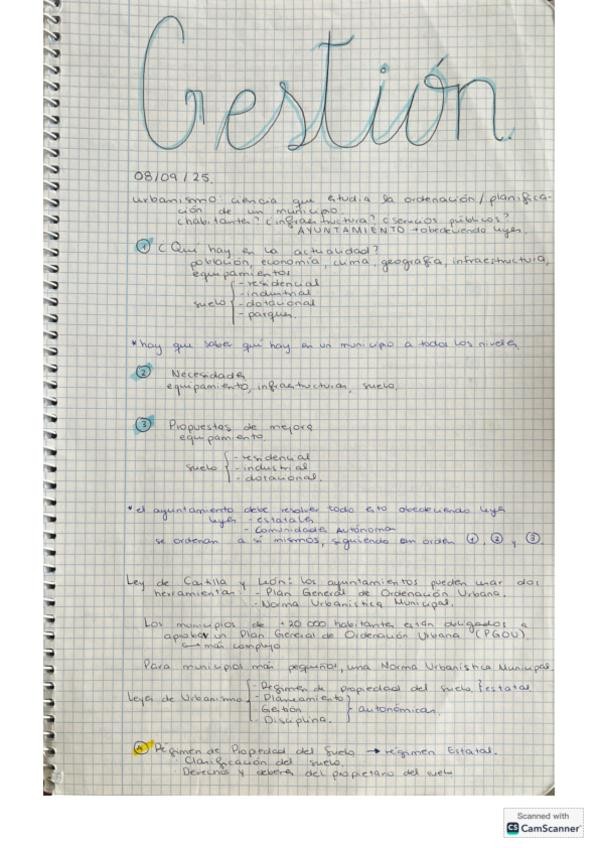 Gestión
08/09/25.
urbanismo: ciencia que estudia la ordenación/planifica-
ción de un municipio.
¿habitantes? ¿infraestructura? ¿servicios públicos?
AYUNTAMIENTO → obedeciendo leyes.
① ¿Qué hay en la actualidad?
población, economía, clima, geografía, infraestructura,
equipamientos
suelo { - residencial
- industrial
- dotacional
- parques.
* hay que saber qué hay en un municipio a todos los niveles
② Necesidades
equipamiento, infraestructuras, suelo.
③ Propuestas de mejora
equipamiento.
suelo { - residencial
- industrial
- dotacional.
* el ayuntamiento debe resolver todo esto obedeciendo leyes
leyes - estatales
- Comunidades Autónoma
se ordenan a sí mismos, siguiendo un orden ①, ② y ③.
Ley de Castilla y León: los ayuntamientos pueden usar dos
herramientas: - Plan General de Ordenación Urbana.
- Norma Urbanística Municipal.
Los municipios de +20 000 habitantes están obligados a
aprobar un Plan General de Ordenación Urbana (PGOU).
↳ más complejo
Para municipios más pequeños, una Norma Urbanística Municipal.
Leyes de Urbanismo { - Régimen de propiedad del suelo. } estatal
- Planeamiento
- Gestión } autonómicas.
- Disciplina.
Ⓐ Régimen de Propiedad del Suelo → régimen Estatal.
· Clasificación del suelo.
· Derechos y deberes del propietario del suelo
Scanned with
CS CamScanner